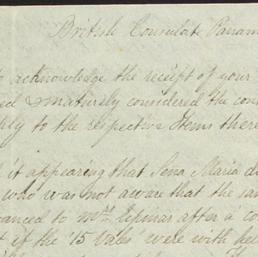 British Consulate Panam
to acknowledge the receipt of your
ed & maturely considered the con
ly to the respective Items there
it appearing that Sena Maria d
who was not aware that the sa
anced to after a co
if the "15 Vales" were with he